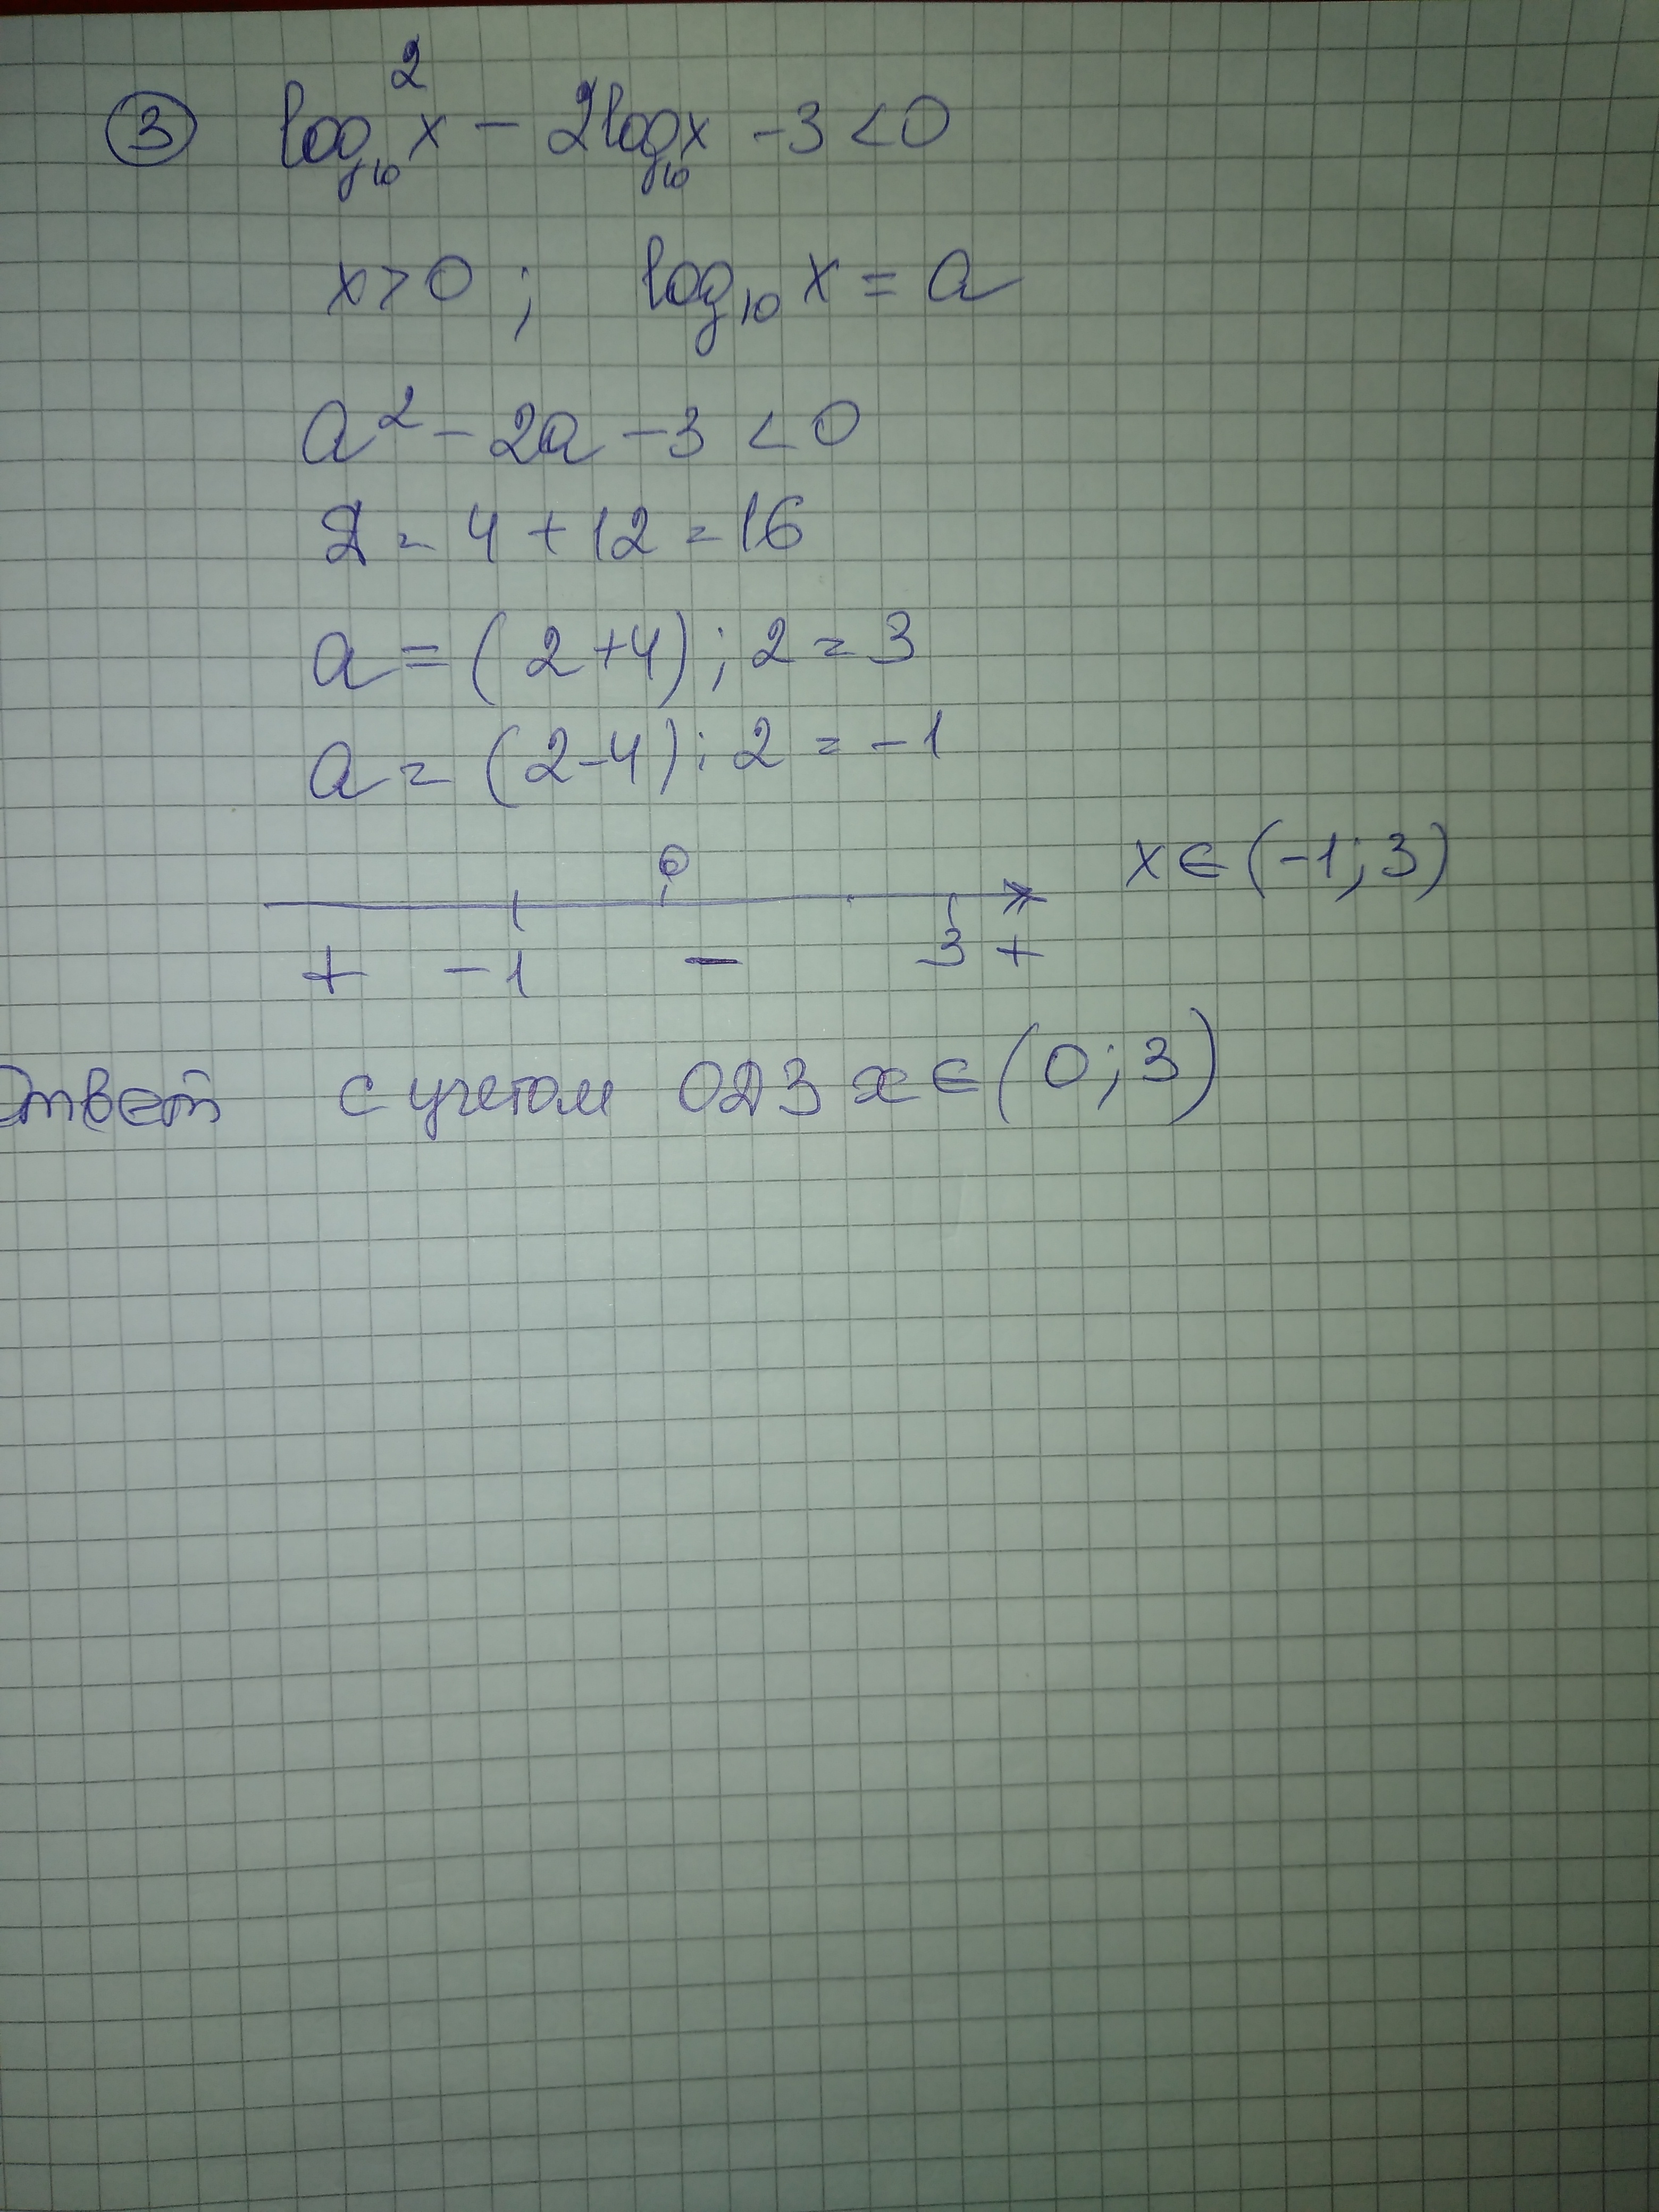 ③ log₁₀²x - 2log₁₀x - 3 < 0
x > 0 ; log₁₀ x = a
a² - 2a - 3 < 0
Д = 4 + 12 = 16
a = (2+4) : 2 = 3
a = (2-4) : 2 = -1
0 x ∈ (-1; 3)
+ -1 - 3 +
Ответ с учетом ОДЗ x ∈ (0; 3)